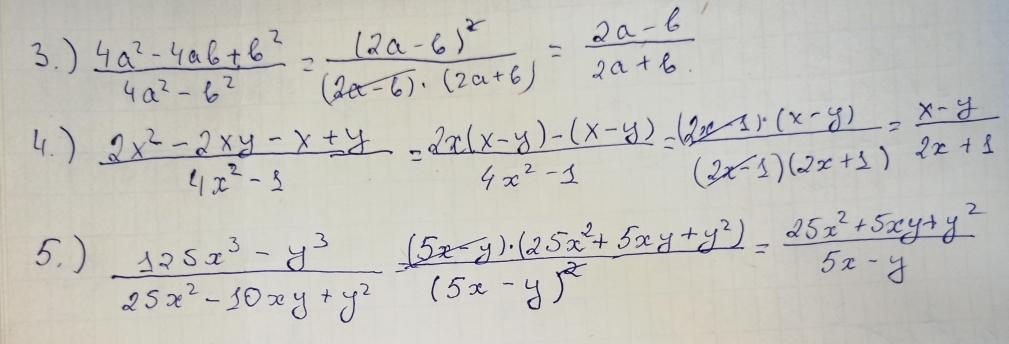 3.) (4a² - 4ab + b²)/(4a² - b²) = (2a - b)²/((2a - b) · (2a + b)) = (2a - b)/(2a + b).
4.) (2x² - 2xy - x + y)/(4x² - 1) = (2x(x - y) - (x - y))/(4x² - 1) = ((2x - 1) · (x - y))/((2x - 1)(2x + 1)) = (x - y)/(2x + 1)
5.) (125x³ - y³)/(25x² - 10xy + y²) ((5x - y) · (25x² + 5xy + y²))/(5x - y)² = (25x² + 5xy + y²)/(5x - y)